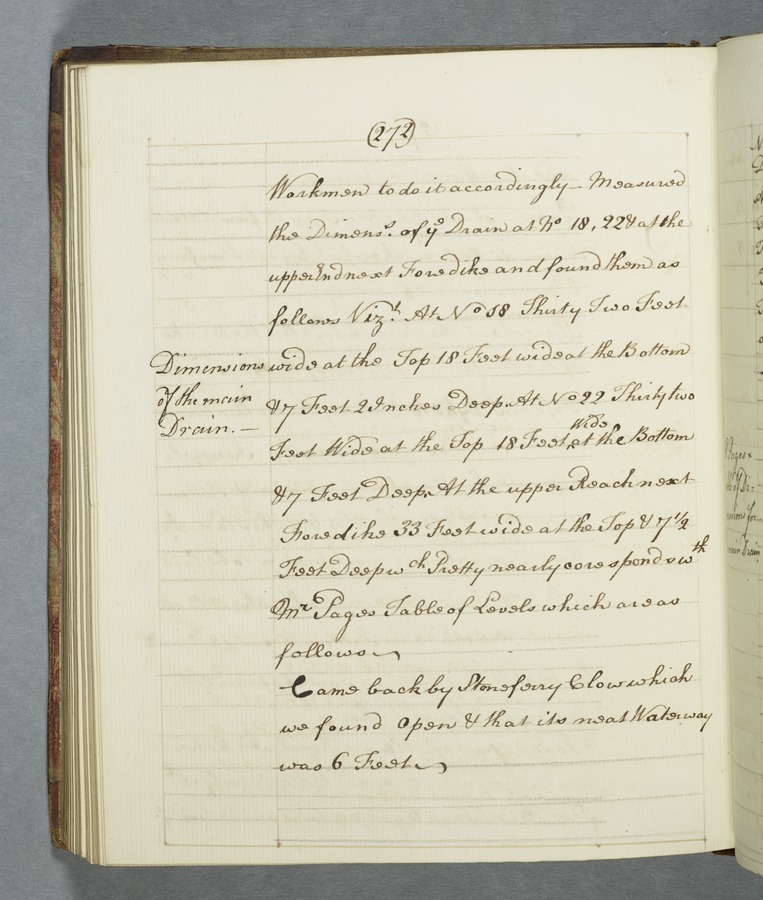 (272)
Workmen to do it accordingly - Measured
the Dimens.s of ye Drain at No 18, 22 & at the
upper End next Foredike and found them as
follows Vizt. At No 18 Thirty Two Feet
Dimensions
of the main
Drain. —
wide at the Top 18 Feet wide at the Bottom
& 7 Feet 2 Inches Deep. At No 22 Thirty two
Wide
Feet Wide at the Top 18 Feet at the Bottom
& 7 Feet Deep. At the upper Reach next
Foredike 33 Feet wide at the Top & 7 1/2
Feet Deep wch Pretty nearly coresponds wth
Mr Pages Table of Levels which are as
follows
Came back by Stoneferry Clow which
we found Open & that its neat Waterway
was 6 Feet